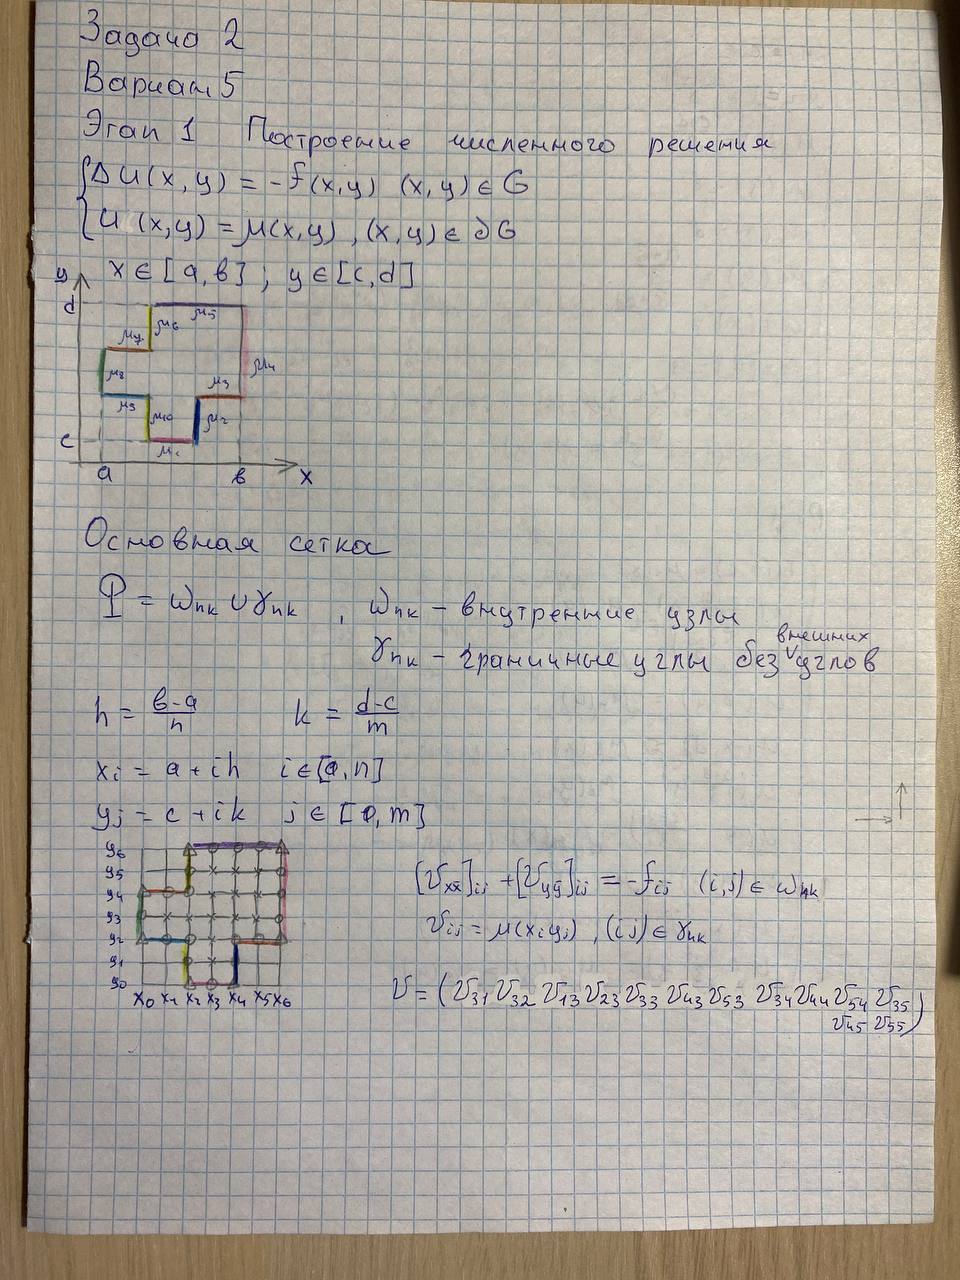 Задача 2
Вариант 5
Этап 1 Построение численного решения
{ΔU(x,y) = -f(x,y) (x,y) ∈ G
U(x,y) = μ(x,y), (x,y) ∈ ∂G
x ∈ [a,в]; y ∈ [c,d]
y
d
μ5
μ6
μ7
μ4
μ8
μ3
μ9
μ10
μ2
c
μ1
a
в
x
Основная сетка
Φ = ωnк ∪ γnк, ωnк – внутренние узлы
внешних
γnк – граничные углы без углов
h = в-a/n k = d-c/m
xi = a + ih i ∈ [0,n]
yj = c + ik j ∈ [0,m]
y6
y5
y4
y3
y2
y1
y0
x0 x1 x2 x3 x4 x5 x6
[Vxx̄]ij + [Vyȳ]ij = -fij (i,j) ∈ ωnк
Vij = μ(xi yj), (ij) ∈ γnк
V = (V31 V32 V13 V23 V33 V43 V53 V34 V44 V54 V35
V45 V55)